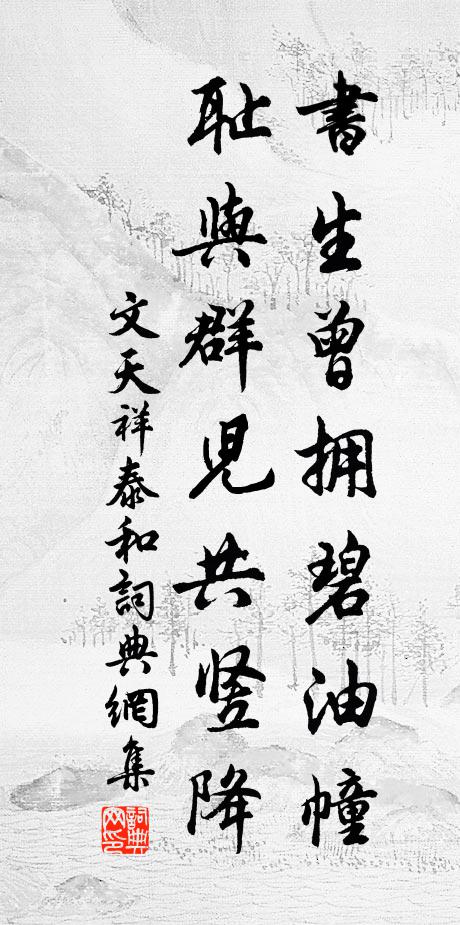 書生曾拥碧油幢
耻與群児共竖降
文天祥泰和詞典網集
詞典网印